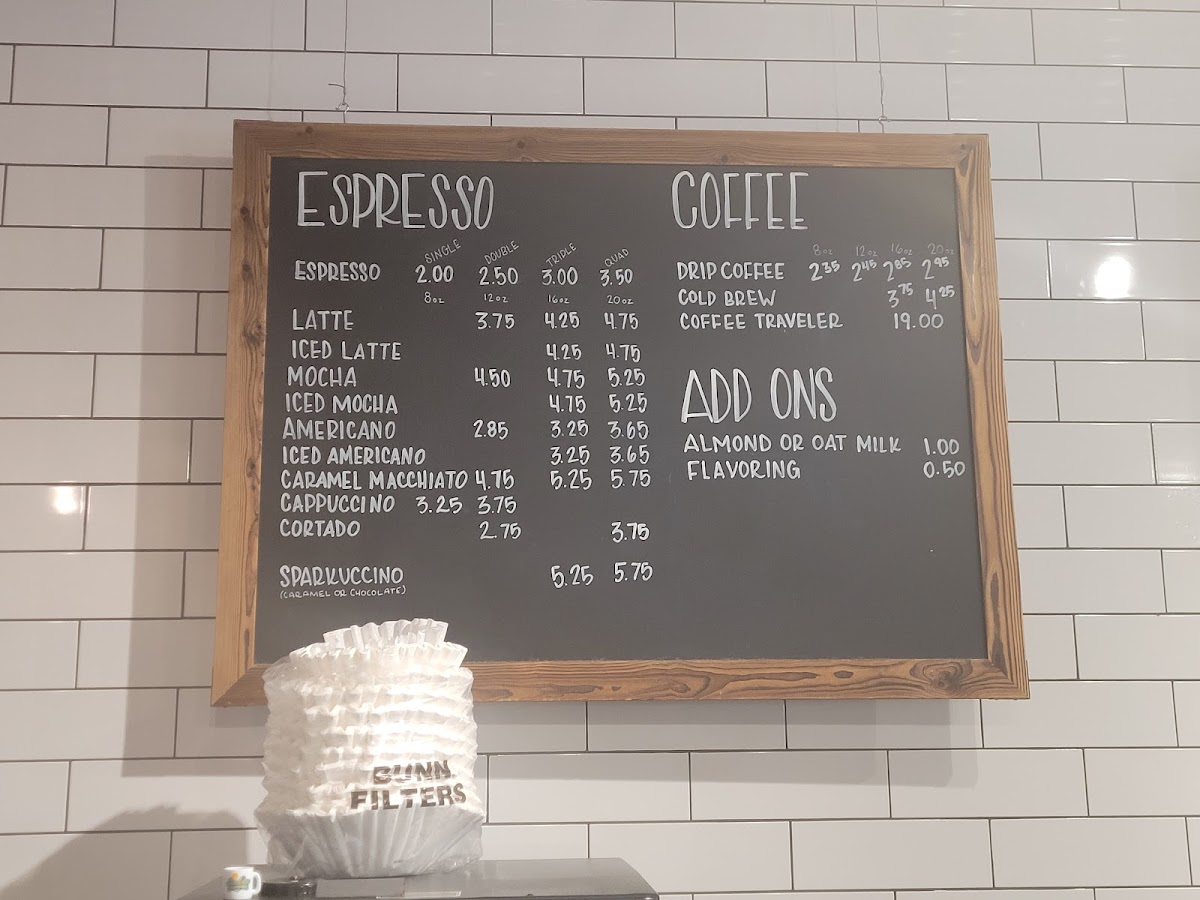 ESPRESSO
SINGLE DOUBLE TRIPLE QUAD
ESPRESSO 2.00 2.50 3.00 3.50
8oz 12oz 16oz 20oz
LATTE 3.75 4.25 4.75
ICED LATTE 4.25 4.75
MOCHA 4.50 4.75 5.25
ICED MOCHA 4.75 5.25
AMERICANO 2.85 3.25 3.65
ICED AMERICANO 3.25 3.65
CARAMEL MACCHIATO 4.75 5.25 5.75
CAPPUCCINO 3.25 3.75
CORTADO 2.75 3.75
SPARKUCCINO 5.25 5.75
(CARAMEL OR CHOCOLATE)
COFFEE
8oz 12oz 16oz 20oz
DRIP COFFEE 2.35 2.45 2.85 2.95
COLD BREW 3.75 4.25
COFFEE TRAVELER 19.00
ADD ONS
ALMOND OR OAT MILK 1.00
FLAVORING 0.50
BUNN
FILTERS